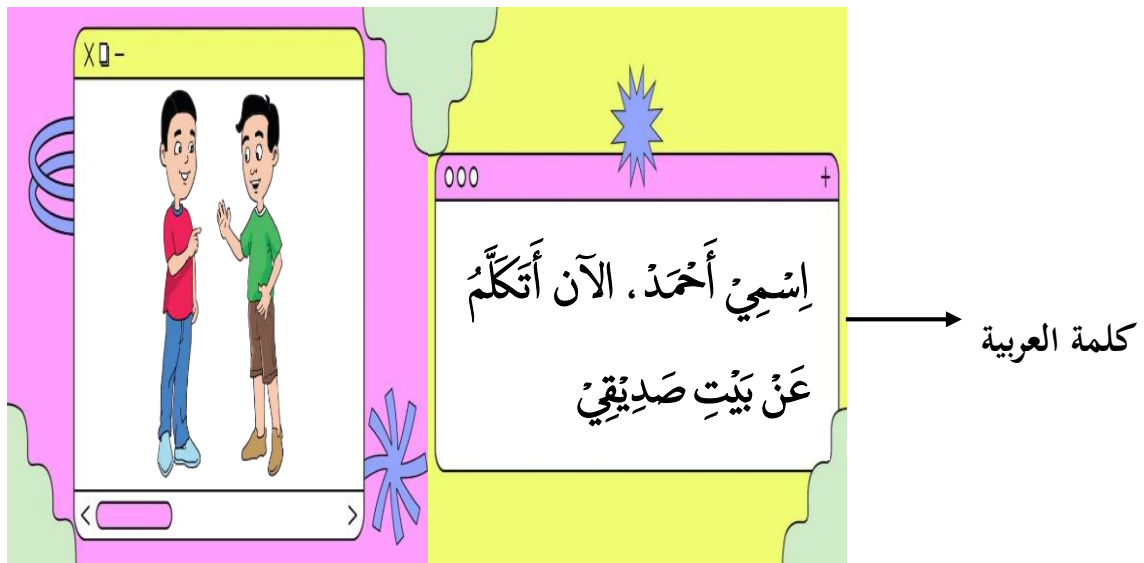 اِسْمِيْ أَحْمَدْ، الآن أَتَكَلَّمُ
عَنْ بَيْتِ صَدِيْقِيْ
كلمة العربية